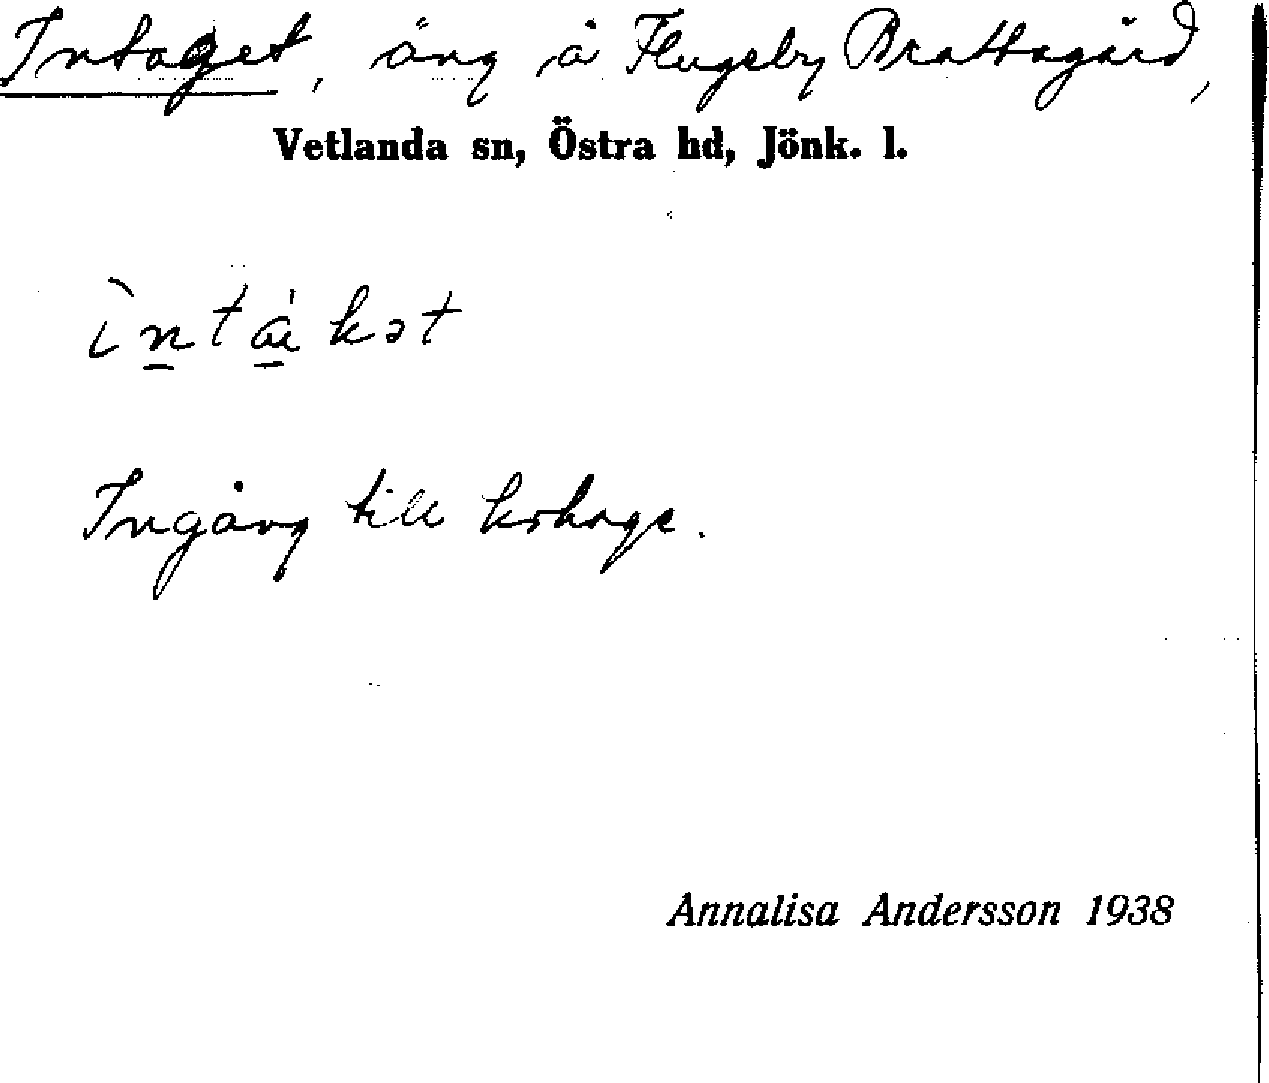 Intaget, äng å Flugeby Brattagård,
Vetlanda sn, Östra hd, Jönk. l.
ìntákət
Ingång till kohage.
Annalisa Andersson 1938